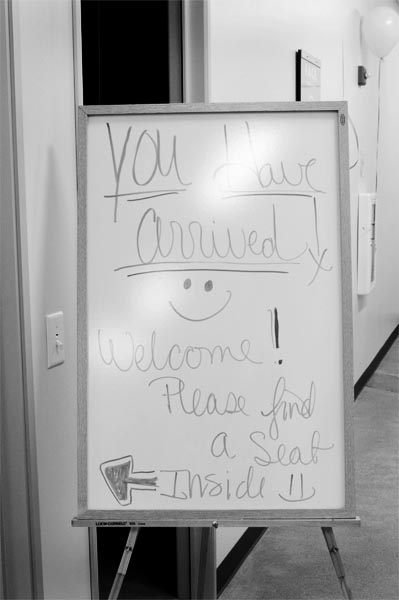 You Have
arrived!
Welcome!
Please find
a Seat
Inside